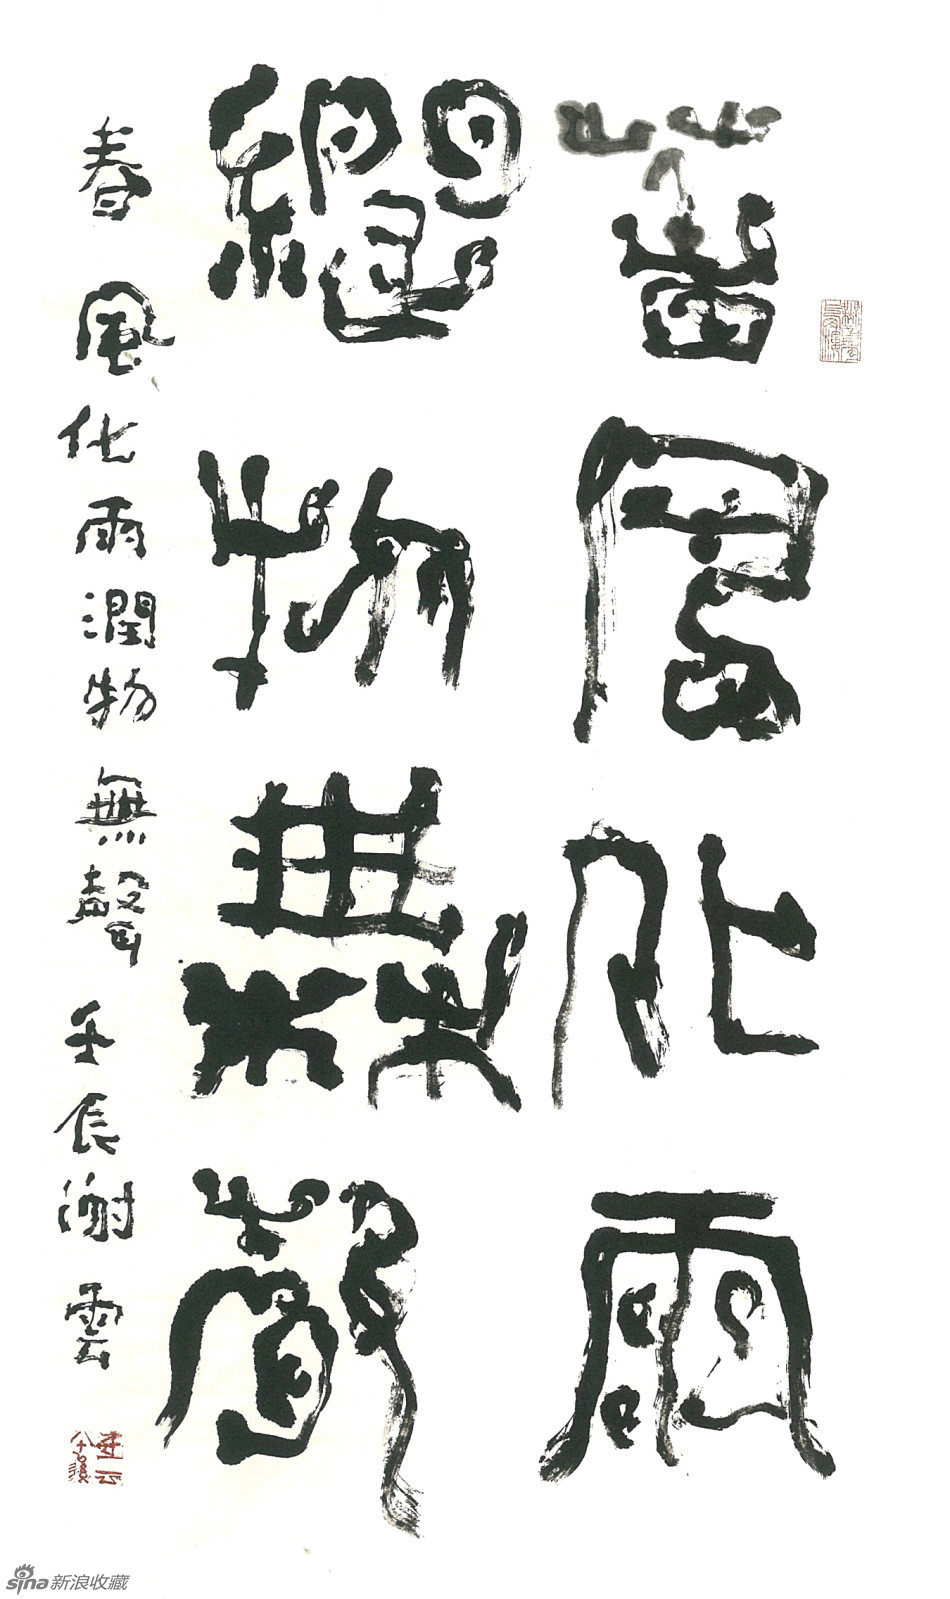 春風化雨
潤物無聲
春風化雨潤物無聲 壬辰謝雲
sina新浪收藏